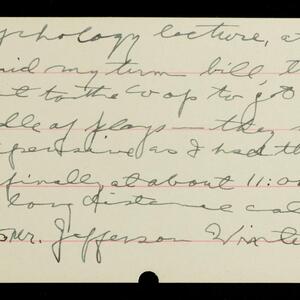 ychology lecture, a
aid my term bill, t
t to the Coop to get
dle of plays — they
pensive as I had th
finally at about 11:0
long distance cal
Mr. Jefferson Winte